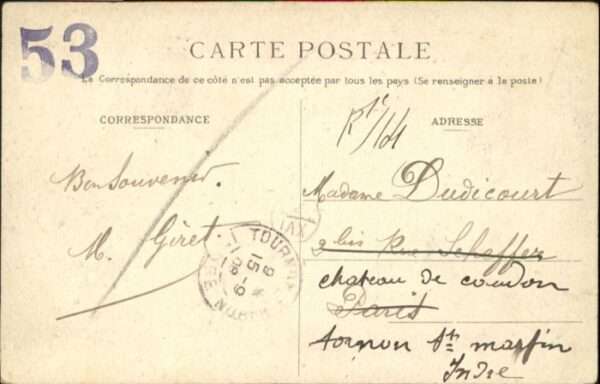 53
CARTE POSTALE
La Correspondance de ce côté n'est pas acceptée par tous les pays (Se renseigner à la poste)
CORRESPONDANCE
ADRESSE
Bon Souvenir.
M. Géret.
Madame Dudicourt
2 bis Rue Scheffer
chateau de coudon
Paris
tornon st martin
Indre
XVI
TOURNON
15
INDRE